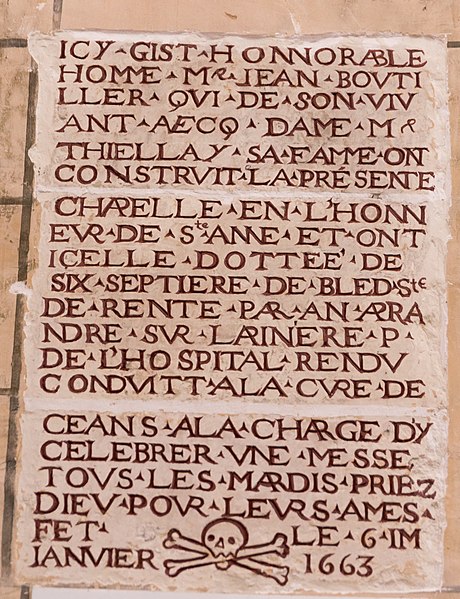 ICY GIST HONNORABLE
HOMME Mr IEAN BOVTI
LLER QVI DE SON VIV
ANT AECQ DAME M
THIELLAY SA FAME ON
CONSTRVIT LA PRÉSENTE
CHAPELLE EN L'HONN
EVR DE Ste ANNE ET ONT
ICELLE DOTTEÉ DE
SIX SEPTIERE DE BLED Ste
DE RENTE PAR AN APRA
NDRE SVR P
DE L'HOSPITAL RENDV
CONDVITT A LA CVRE DE
CEANS A LA CHARGE D'Y
CELEBRER VNE MESSE
TOVS LES MARDIS PRIEZ
DIEV POVR LEVRS AMES
FET LE 6 IM
IANVIER 1663